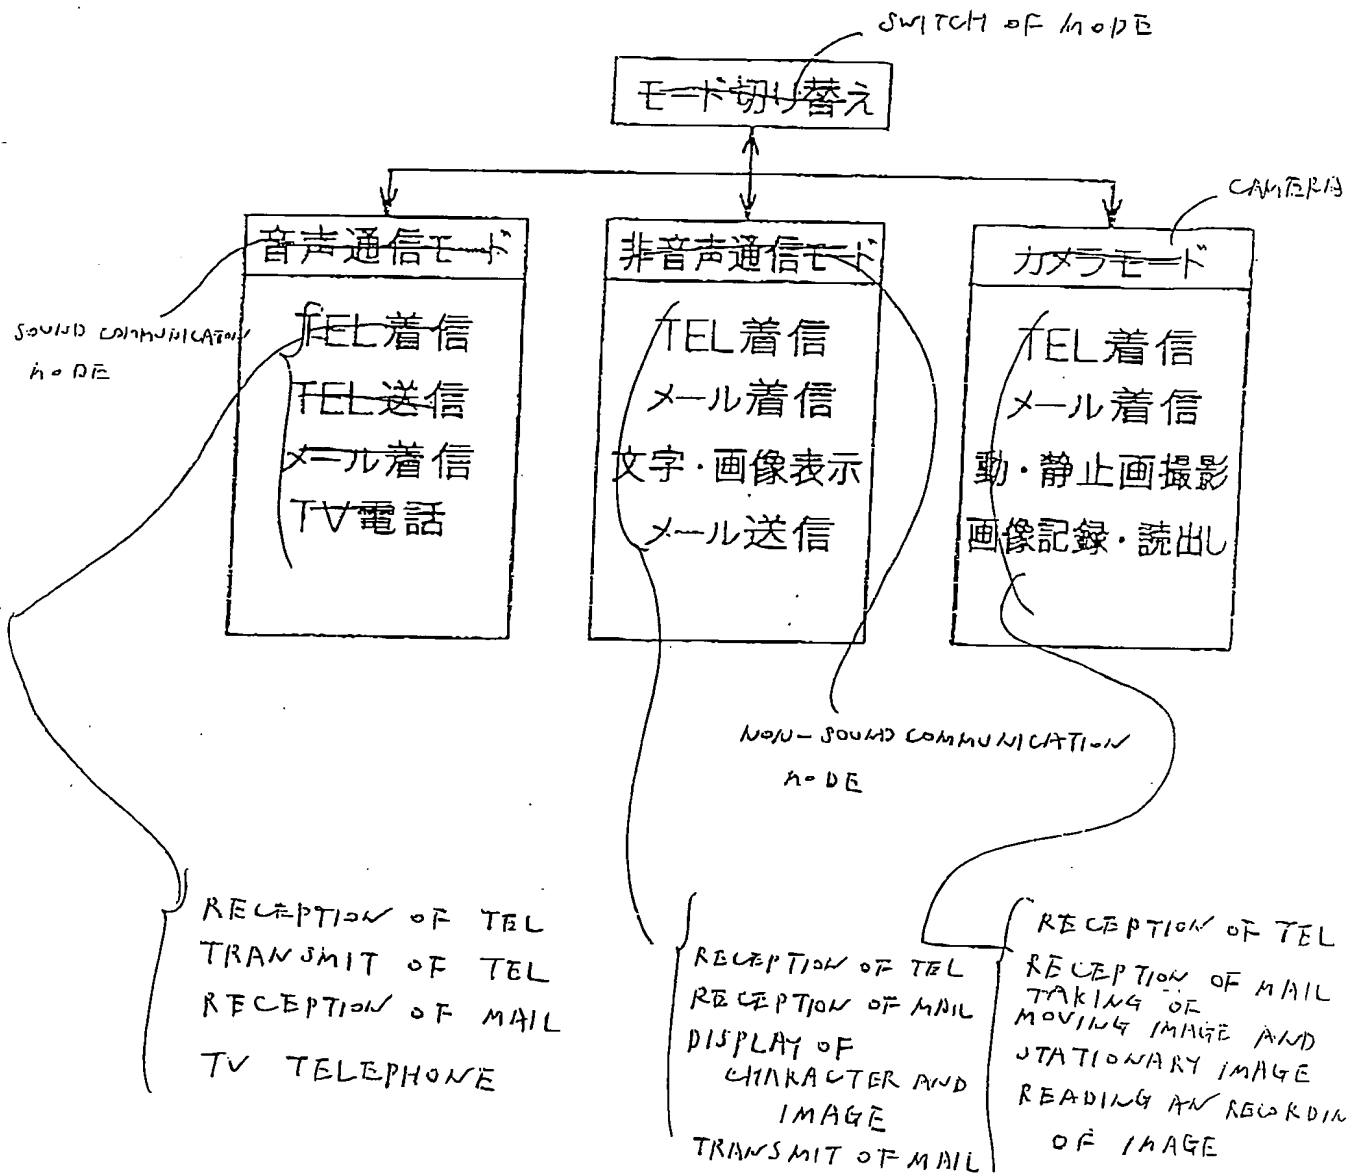 SWITCH OF MODE
モード切り替え
CAMERA
音声通信モード
非音声通信モード
カメラモード
SOUND COMMUNICATION
MODE
TEL着信
TEL送信
メール着信
TV電話
TEL着信
メール着信
文字・画像表示
メール送信
TEL着信
メール着信
動・静止画撮影
画像記録・読出し
NON-SOUND COMMUNICATION
MODE
RECEPTION OF TEL
TRANSMIT OF TEL
RECEPTION OF MAIL
TV TELEPHONE
RECEPTION OF TEL
RECEPTION OF MAIL
DISPLAY OF
CHARACTER AND
IMAGE
TRANSMIT OF MAIL
RECEPTION OF TEL
RECEPTION OF MAIL
TAKING OF
MOVING IMAGE AND
STATIONARY IMAGE
READING AN RECORDIN
OF IMAGE